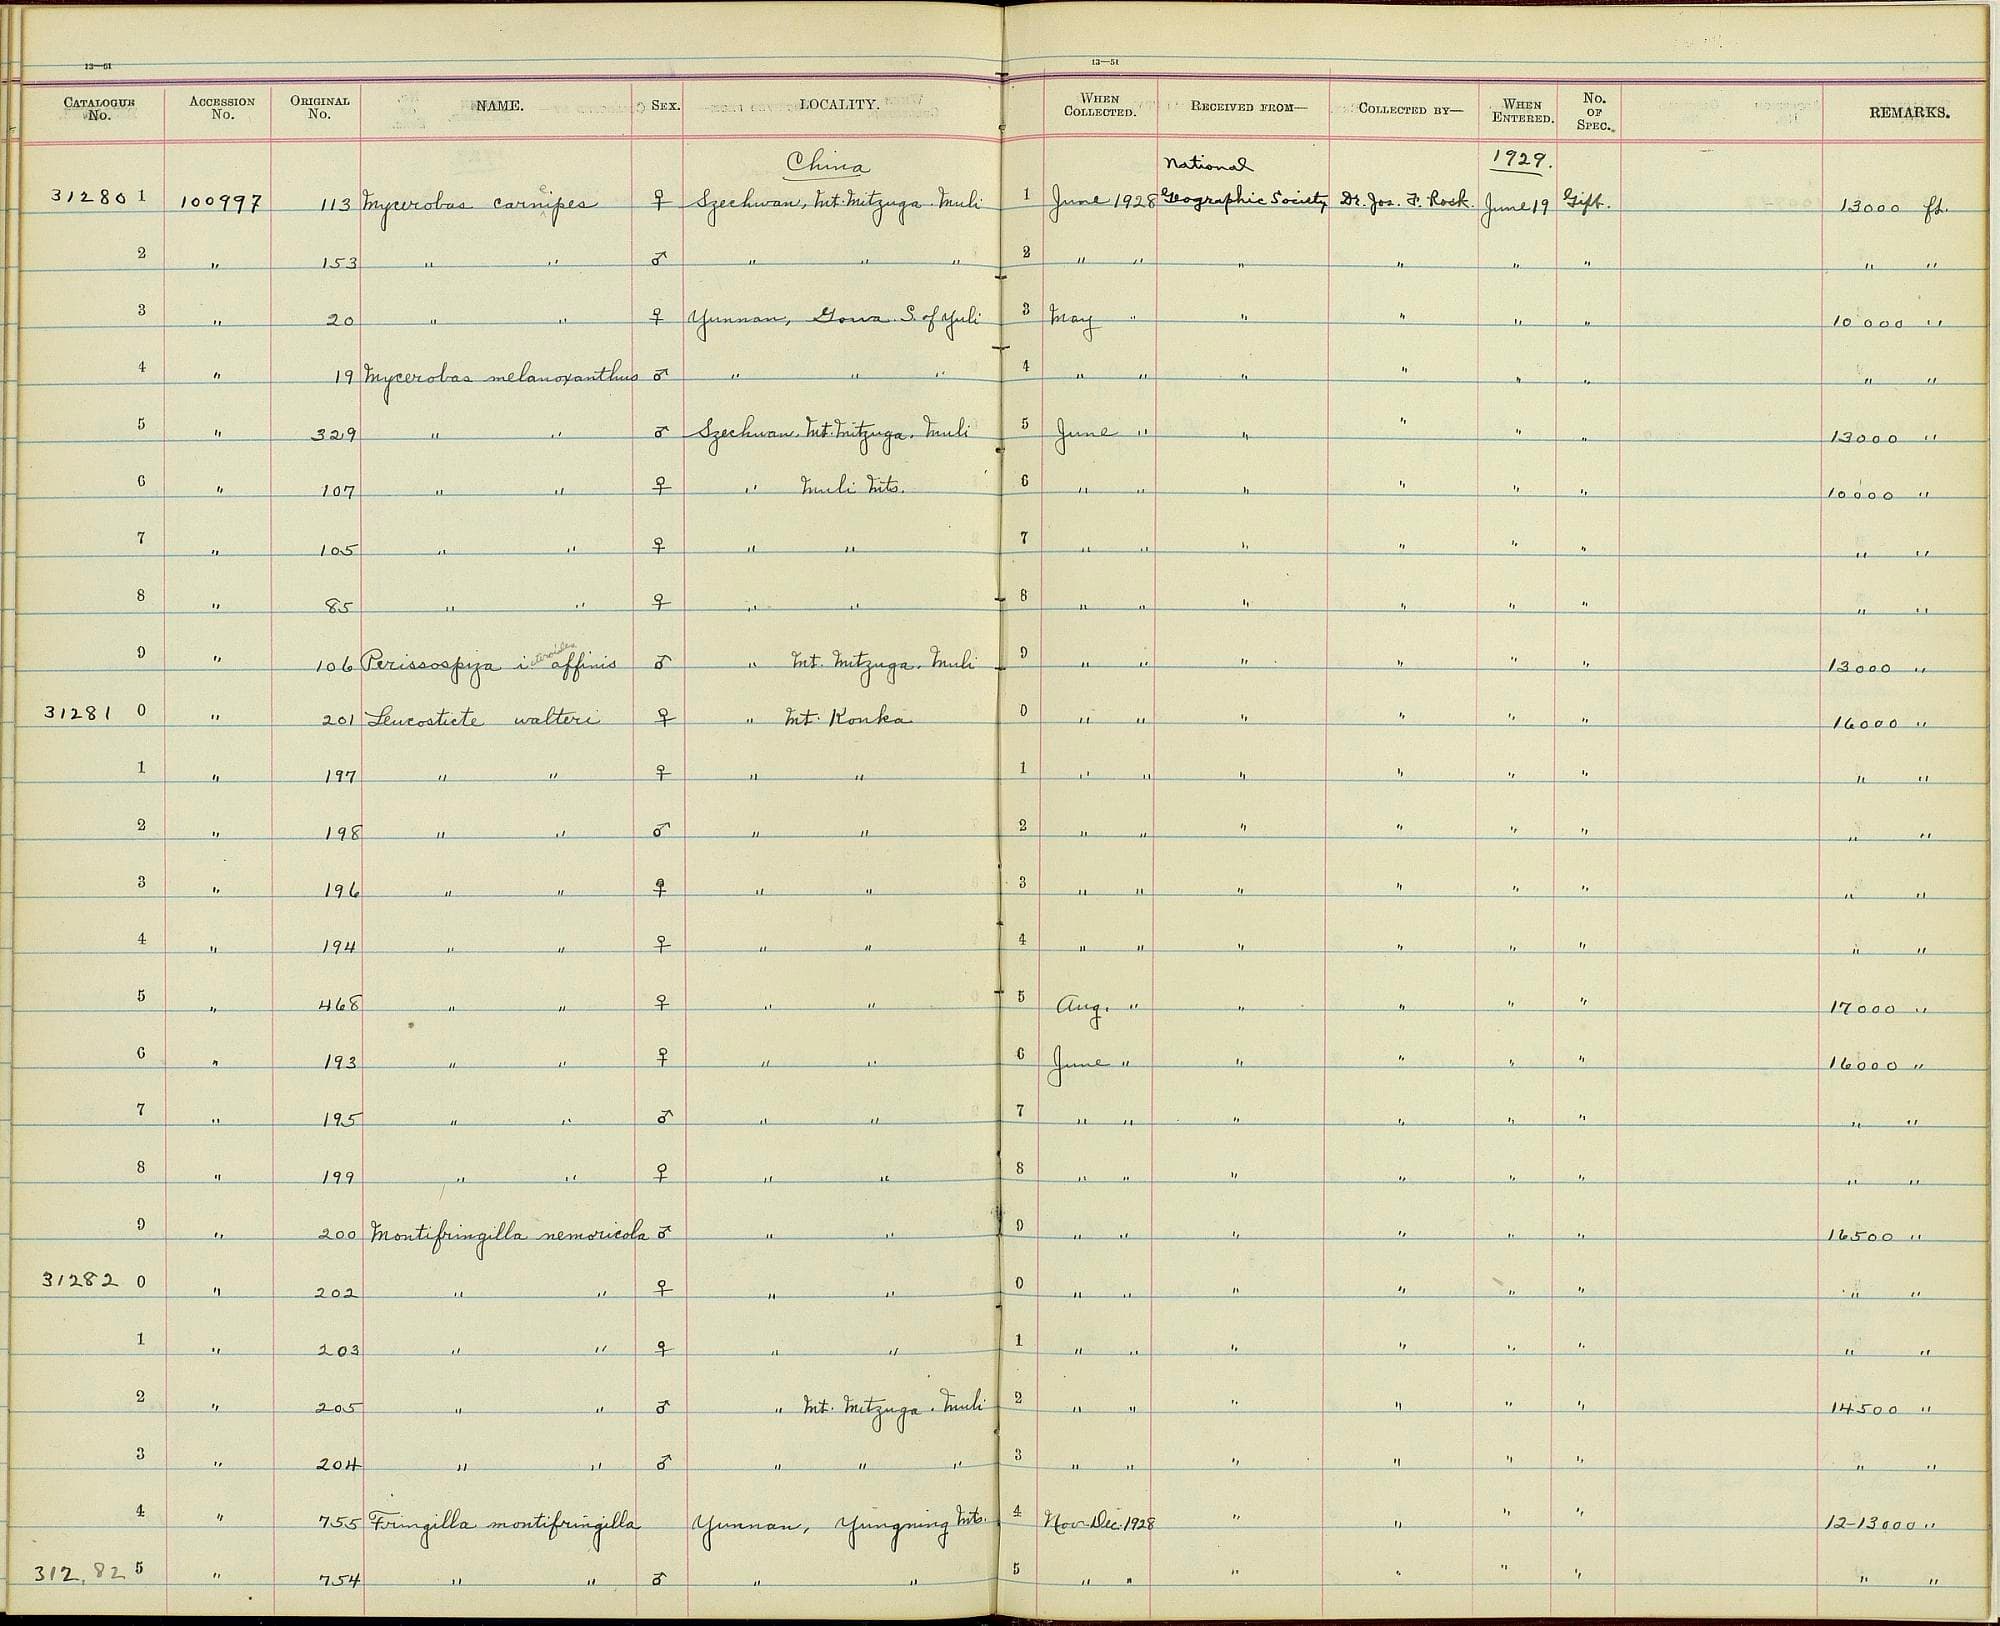 13—51 13—51
CATALOGUE No. ACCESSION No. ORIGINAL No. NAME. SEX. LOCALITY. WHEN COLLECTED. RECEIVED FROM— COLLECTED BY— WHEN ENTERED. No. OF SPEC. REMARKS.
China National 1929.
31280 1 100997 113 Mycerobas carnipes ♀ Szechwan, Mt. Mitzuga. Muli 1 June 1928 Geographic Society Dr. Jos. F. Rock. June 19 Gift. 13000 ft.
2 " 153 " " ♂ " " " 2 " " " " " " " "
3 " 20 " " ♀ Yunnan, S. of Yuli 3 May " " " " " 10000 "
4 " 19 Mycerobas melanoxanthus ♂ " " " 4 " " " " " " " "
5 " 329 " " ♂ Szechwan. Mt. Mitzuga. Muli 5 June " " " " " 13000 "
6 " 107 " " ♀ " Muli Mts. 6 " " " " " " 10000 "
7 " 105 " " ♀ " " 7 " " " " " " " "
8 " 85 " " ♀ " " 8 " " " " " " " "
9 " 106 Perissospiza icteroides affinis ♂ " Mt. Mitzuga. Muli 9 " " " " " " 13000 "
31281 0 " 201 Leucosticte walteri ♀ " Mt. Konka 0 " " " " " " 16000 "
1 " 197 " " ♀ " " 1 " " " " " " " "
2 " 198 " " ♂ " " 2 " " " " " " " "
3 " 196 " " ♀ " " 3 " " " " " " " "
4 " 194 " " ♀ " " 4 " " " " " " " "
5 " 468 " " ♀ " " 5 Aug. " " " " " 17000 "
6 " 193 " " ♀ " " 6 June " " " " " 16000 "
7 " 195 " " ♂ " " 7 " " " " " " " "
8 " 199 " " ♀ " " 8 " " " " " " " "
9 " 200 Montifringilla nemoricola ♂ " " 9 " " " " " " 16500 "
31282 0 " 202 " " ♀ " " 0 " " " " " " " "
1 " 203 " " ♀ " " 1 " " " " " " " "
2 " 205 " " ♂ " Mt. Mitzuga. Muli 2 " " " " " " 14500 "
3 " 204 " " ♂ " " " 3 " " " " " " " "
4 " 755 Fringilla montifringilla Yunnan, Yungning Mts. 4 Nov-Dec. 1928 " " " " 12-13000 "
312,82 5 " 754 " " ♂ " " 5 " " " " " " " "